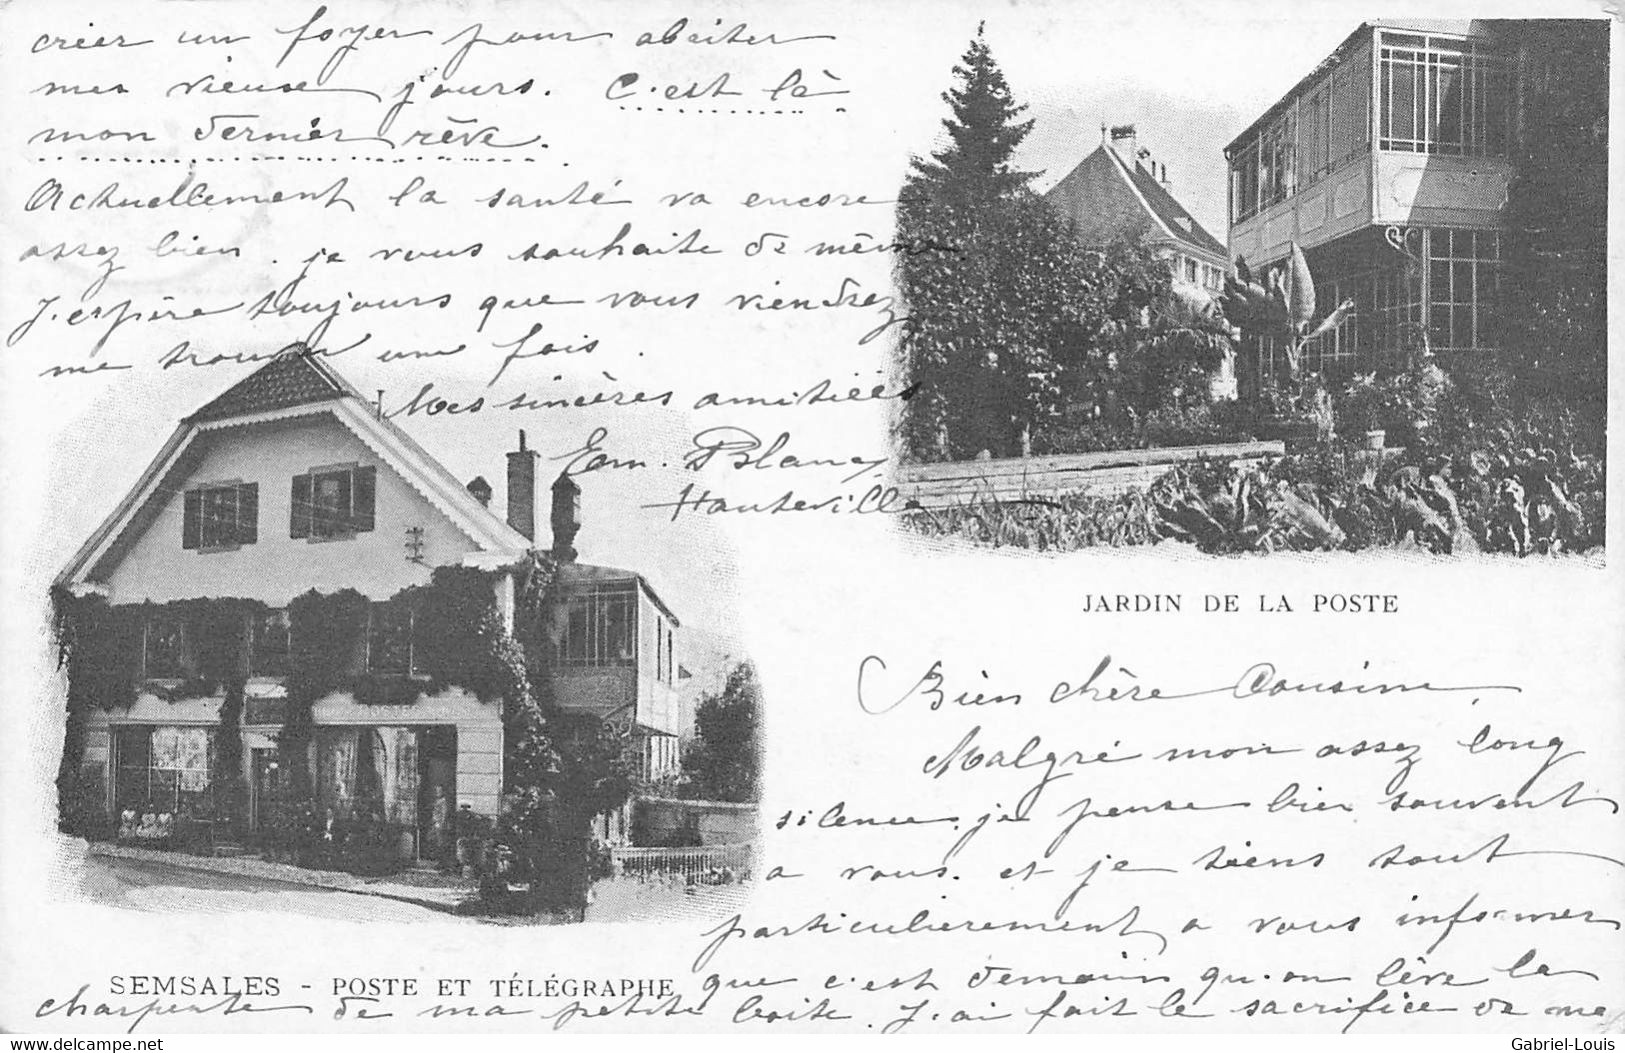 créer un foyer pour abriter
mes vieux jours. C'est là
mon dernier rêve.
Actuellement la santé va encore
assez bien. je vous souhaite de même.
J'espère toujours que vous viendrez
me trouver une fois.
Mes sincères amitiées
Em. Blanc
Hauteville
JARDIN DE LA POSTE
Bien chère Cousine,
Malgré mon assez long
silence, je pense bien souvent
a vous. et je tiens tout
particulièrement a vous informer
SEMSALES - POSTE ET TÉLÉGRAPHE
que c'est demain qu'on lève la
charpente de ma petite boite. J'ai fait le sacrifice de me
www.delcampe.net
Gabriel-Louis